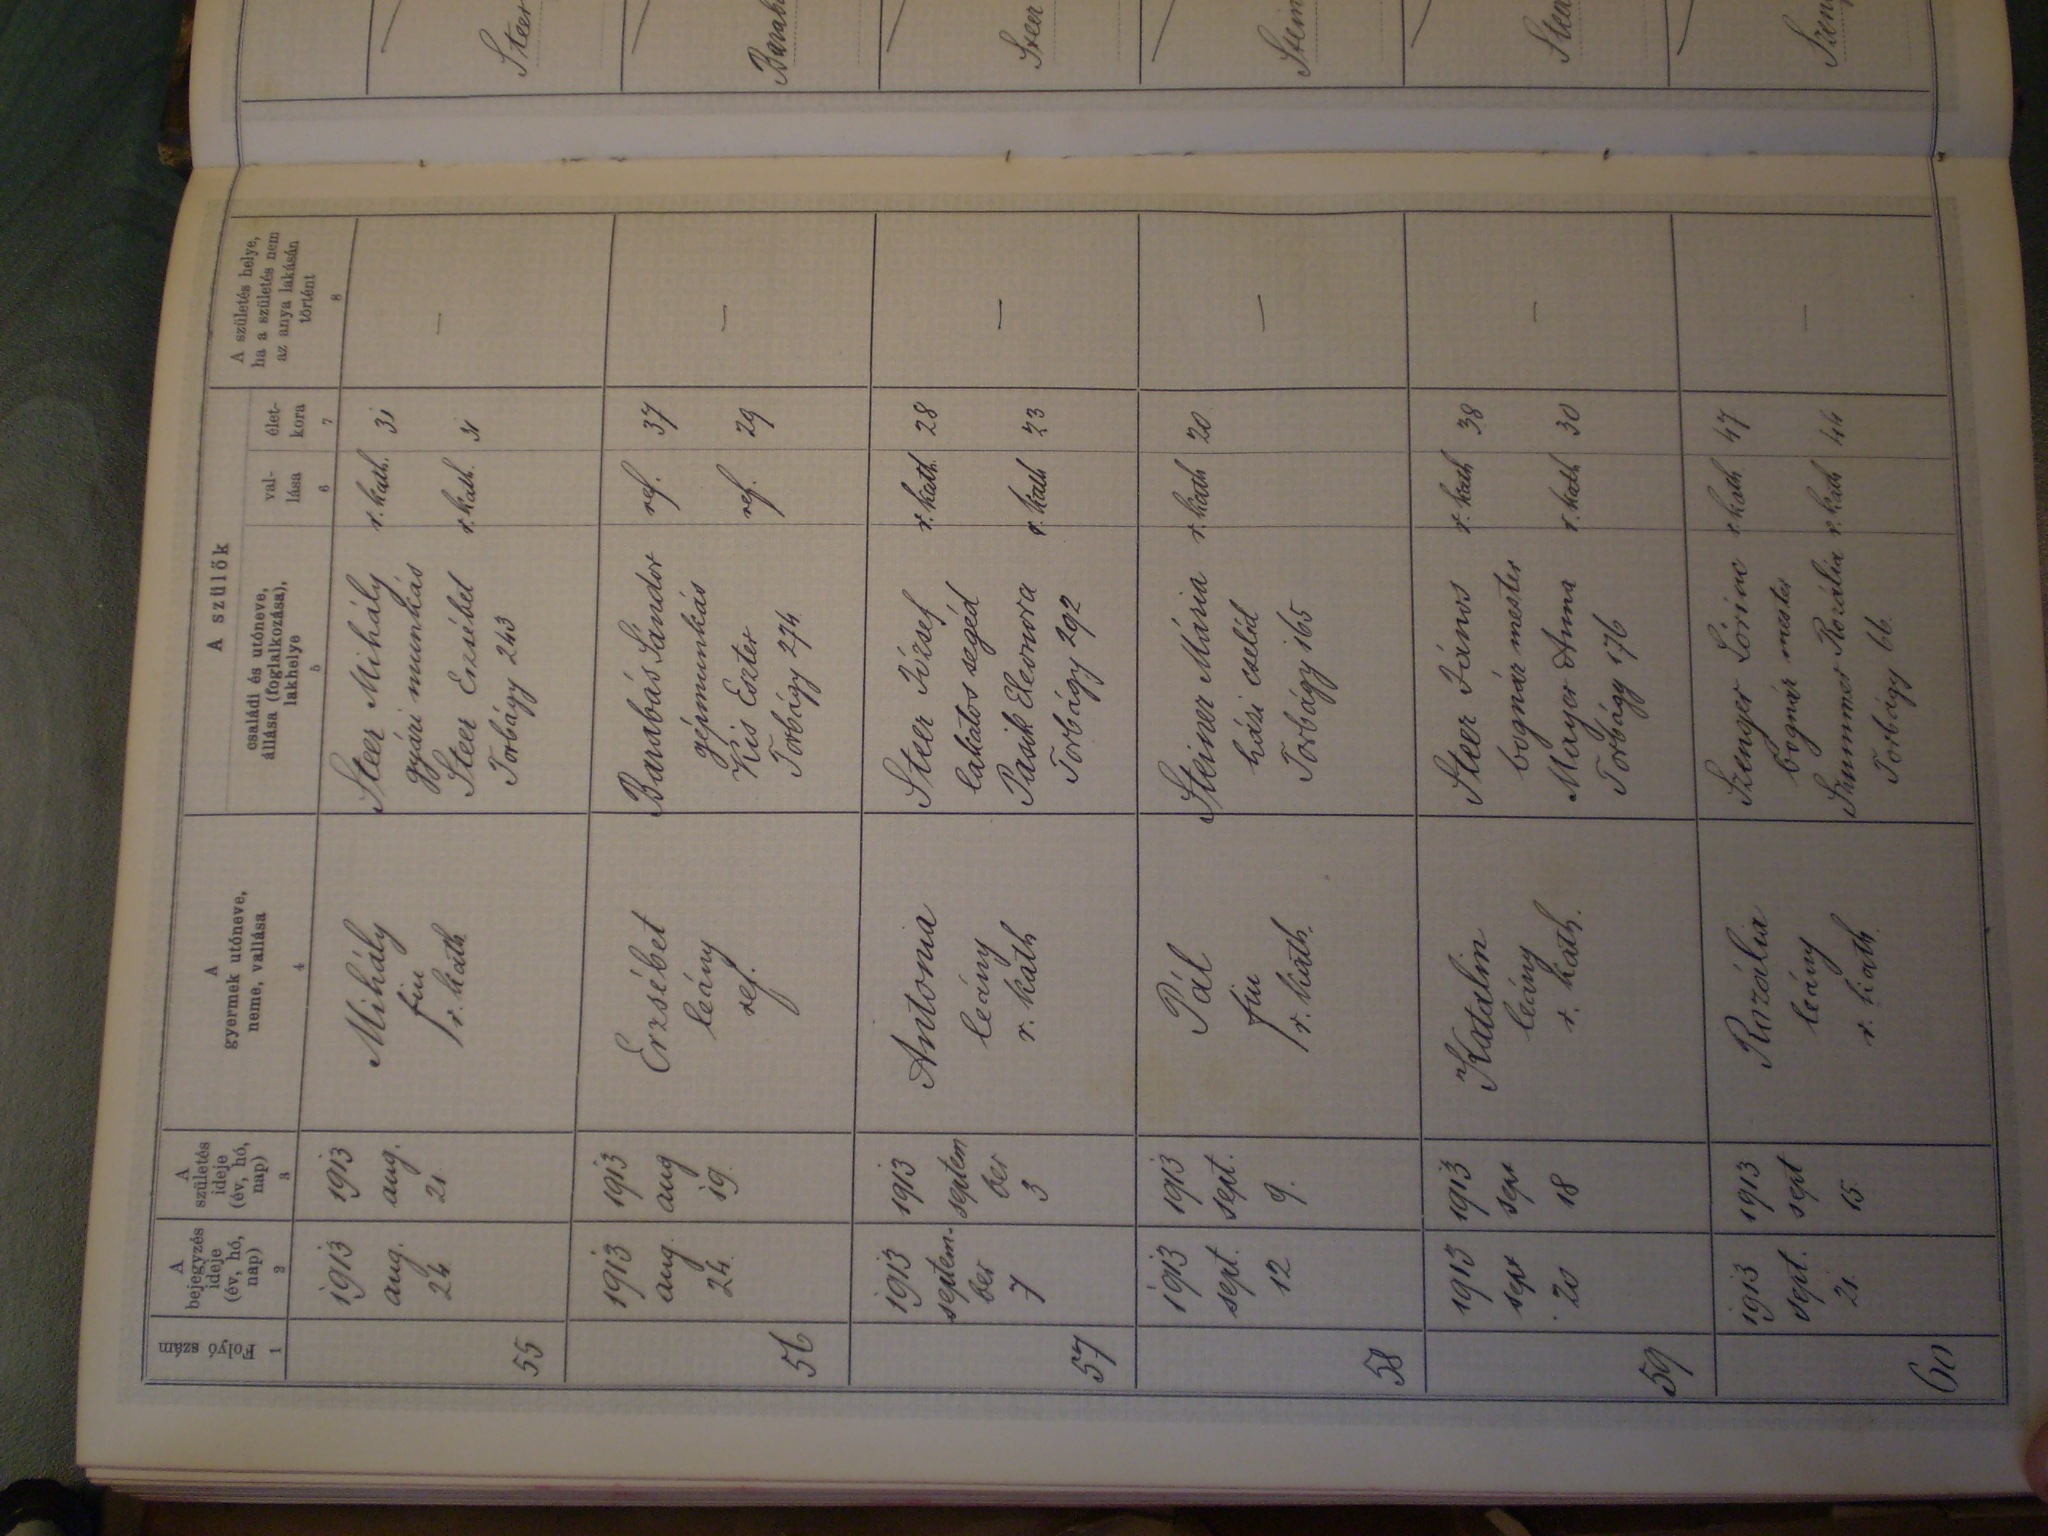 Folyó szám
1
A
bejegyzés
ideje
(év, hó,
nap)
2
A
születés
ideje
(év, hó,
nap)
3
A
gyermek utóneve,
neme, vallása
4
A szülők
családi és utóneve,
állása (foglalkozása),
lakhelye
5
val-
lása
6
élet-
kora
7
A születés helye,
ha a születés nem
az anya lakásán
történt
8
55
1913
aug.
24.
1913
aug.
21.
Mihály
fiu
r. kath.
Steer Mihály r. kath. 31
gyári munkás
Steer Erzsébet r. kath. 31
Torbágy 243
—
56
1913
aug.
24.
1913
aug
19.
Erzsébet
leány
ref.
Barabás Sándor ref. 37
gépmunkás
Kis Eszter ref. 29
Torbágy 274
—
57
1913
septem-
ber
7
1913
septem
ber
3
Antonia
leány
r. kath
Steer József r. kath. 28
lakatos segéd
Eleonora r. kath 23
Torbágy 292
—
58
1913
sept.
12
1913
sept.
9.
Pál
fiu
r. kath.
Steiner Mária r. kath 20.
házi cseléd
Torbágy 165
—
59
1913
sept
20
1913
sept
18
Katalin
leány
r. kath.
Steer János r. kath 38
bognár mester
Mayer Anna r. kath 30
Torbágy 176
—
60
1913
sept.
21.
1913
sept
15.
Rozália
leány
r. kath.
Szenger Lőrinc r. kath 47
bognár mester
Rozália r. kath 44
Torbágy 66.
—
Steer
Steer
Stein
Steer